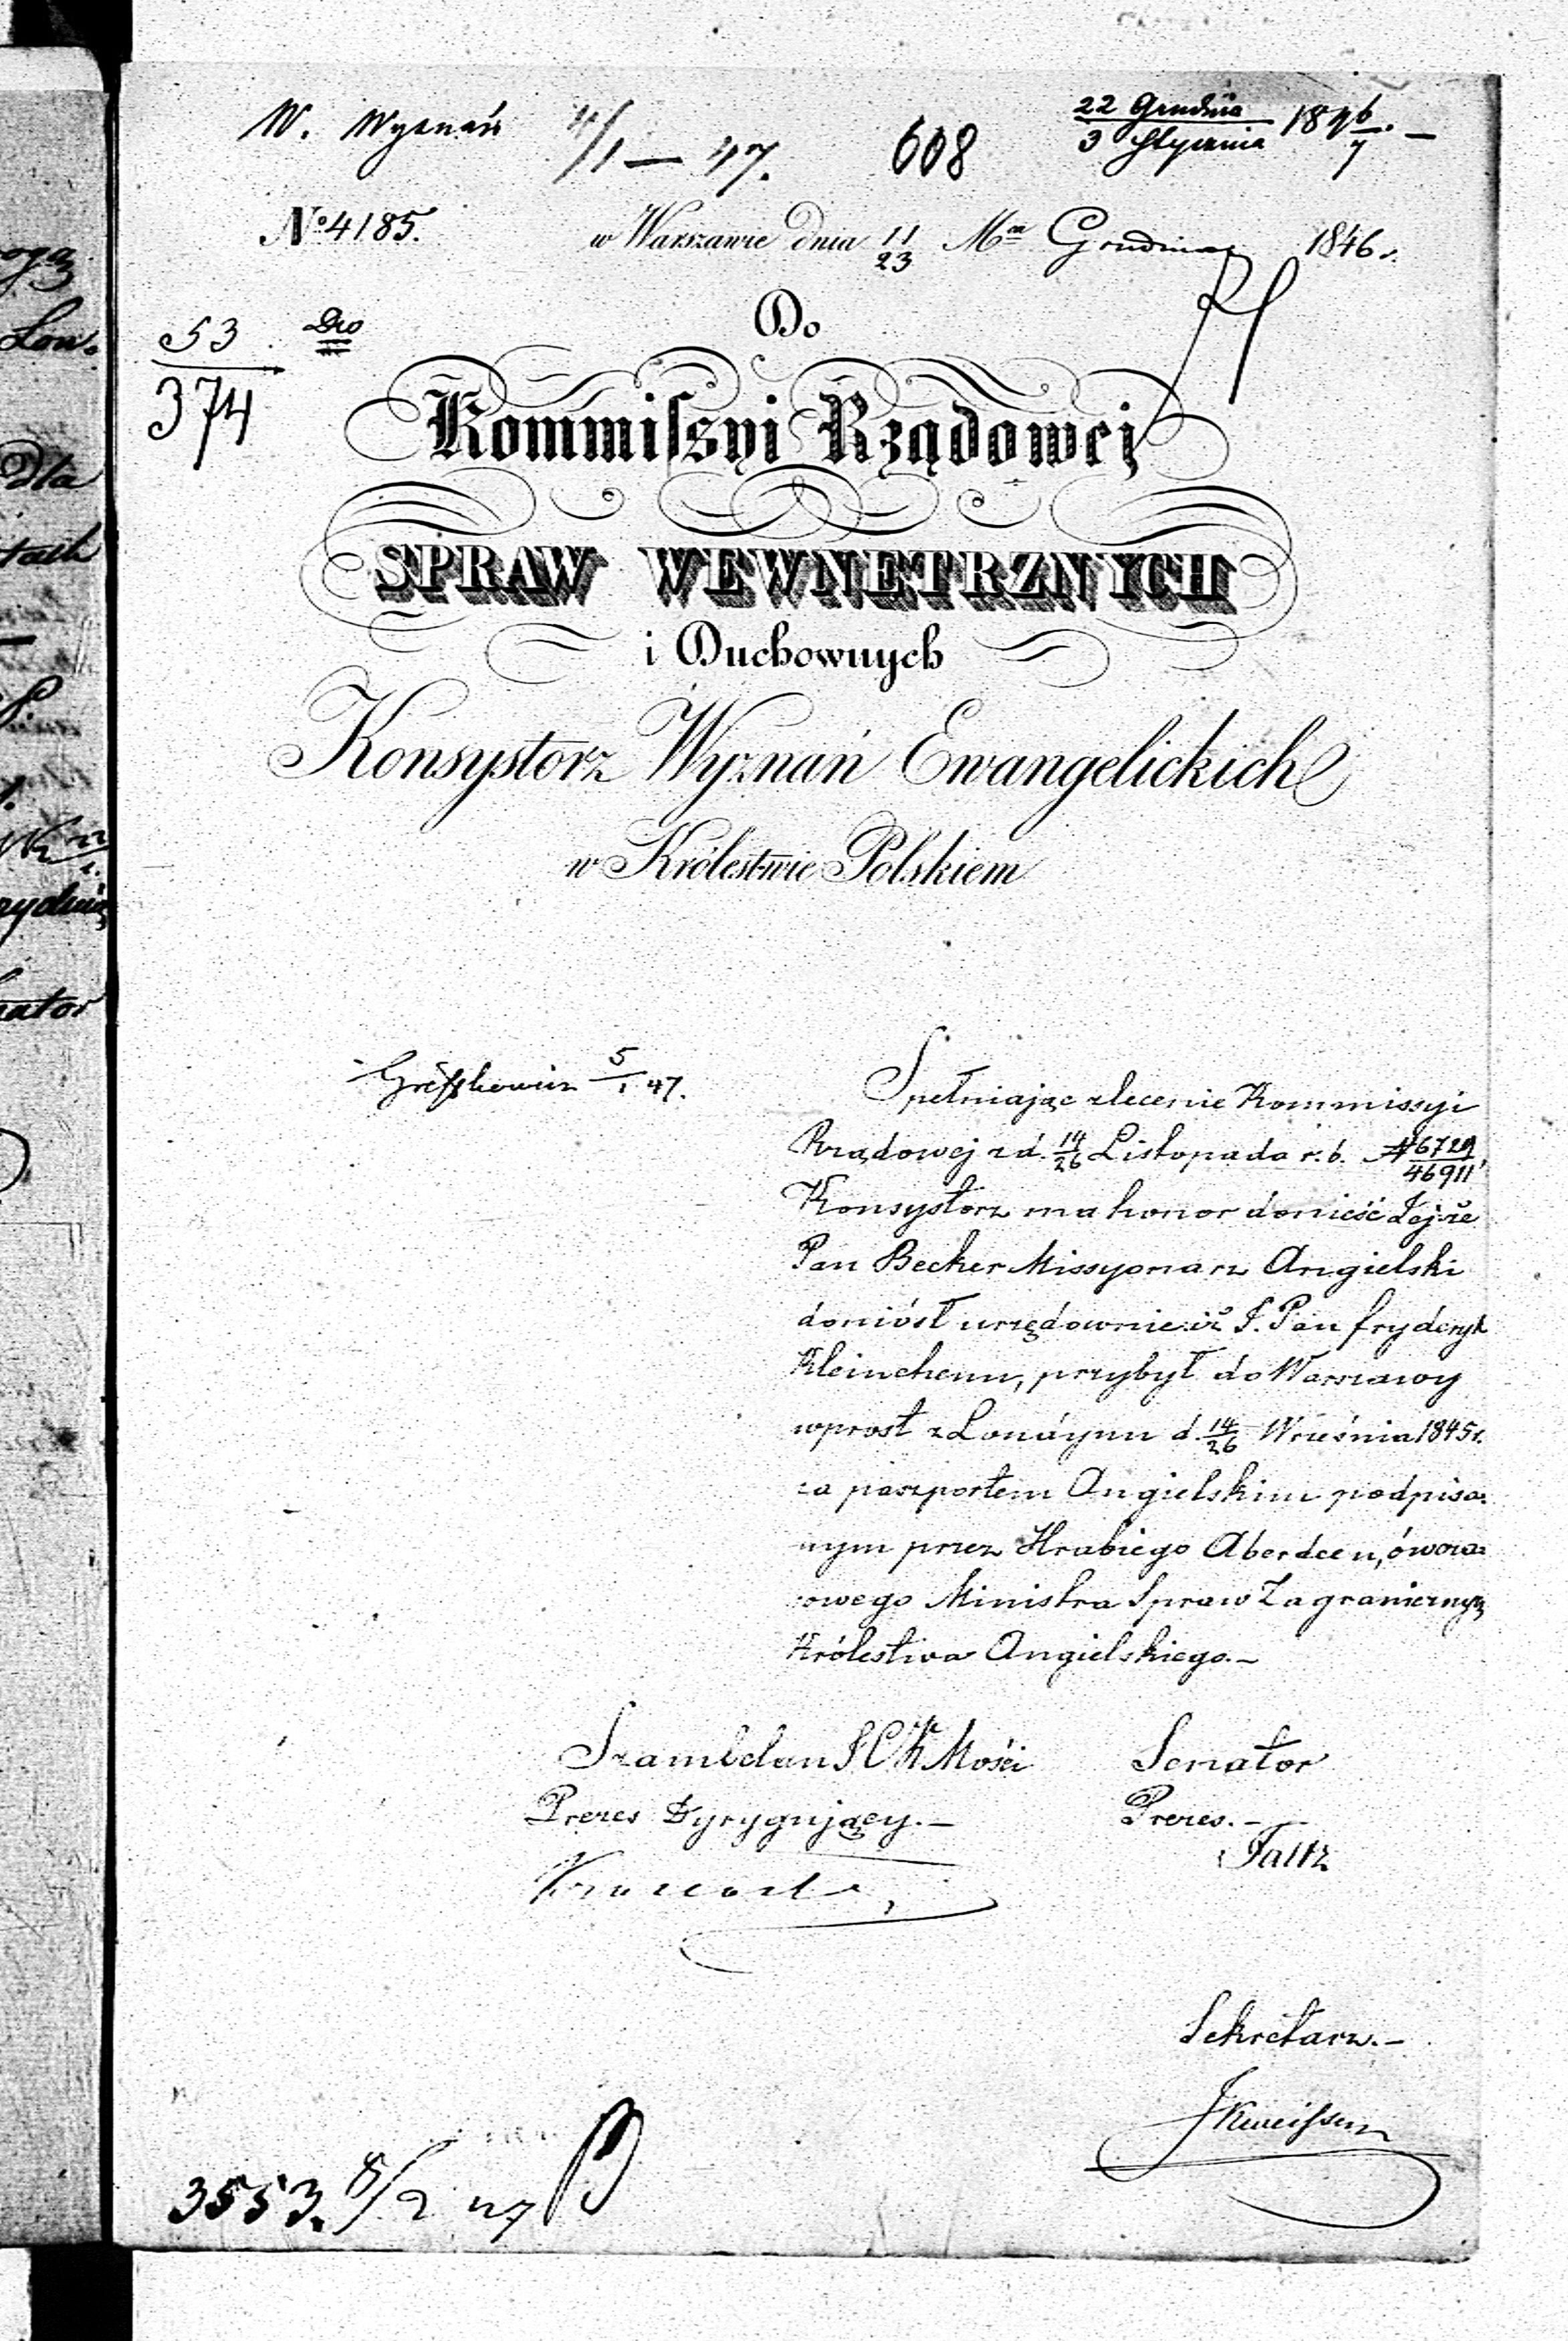 W. Wyznań 4/1 — 47. 608 22 Grudnia / 3 Stycznia 1846/7. —
No 4185. w Warszawie dnia 11/23 Mca Grudnia 1846 r.
53 / 374
Do
Kommissyi Rządowej
SPRAW WEWNETRZNYCH
i Duchownych
Konsystorz Wyznań Ewangelickich
w Królestwie Polskiem
5/1 47.
Spełniając zlecenie Kommissyi
Rządowej z d. 14/26 Listopada r. b. N 6729/46911,
Konsystorz ma honor donieść Jej że
Pan Becker Missyonarz Angielski
doniósł urzędownie iż J. Pan Fryderyk
Kleinehenn, przybył do Warszawy
wprost z Londynu d. 14/26 Września 1845 r.
za paszportem Angielskim podpisa=
nym przez Hrabiego Aberdeen, ówcza=
sowego Ministra Spraw Zagranicznych
Królestwa Angielskiego. —
Szambelan J C K Mości Senator
Prezes Dyrygujący. — Prezes. —
Faltz
Sekretarz. —
3553. 8/2 47
oga
Lon=
Dla
tach
nator